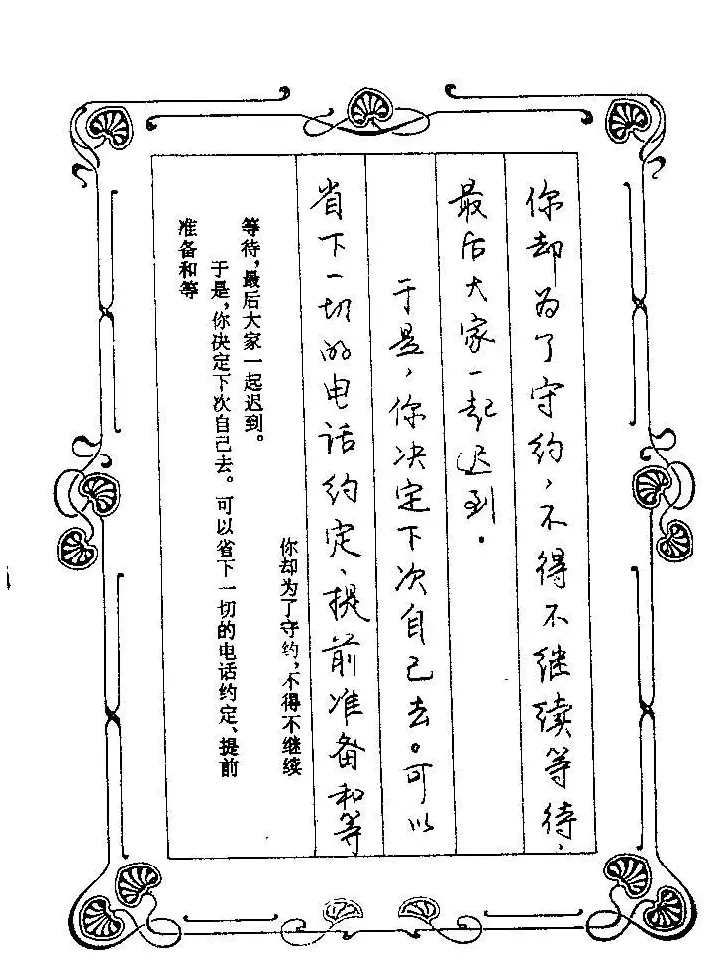 你却为了守约,不得不继续等待,
最后大家一起迟到.
于是,你决定下次自己去。可以
省下一切的电话约定、提前准备和等
你却为了守约,不得不继续
等待,最后大家一起迟到。
于是,你决定下次自己去。可以省下一切的电话约定、提前
准备和等